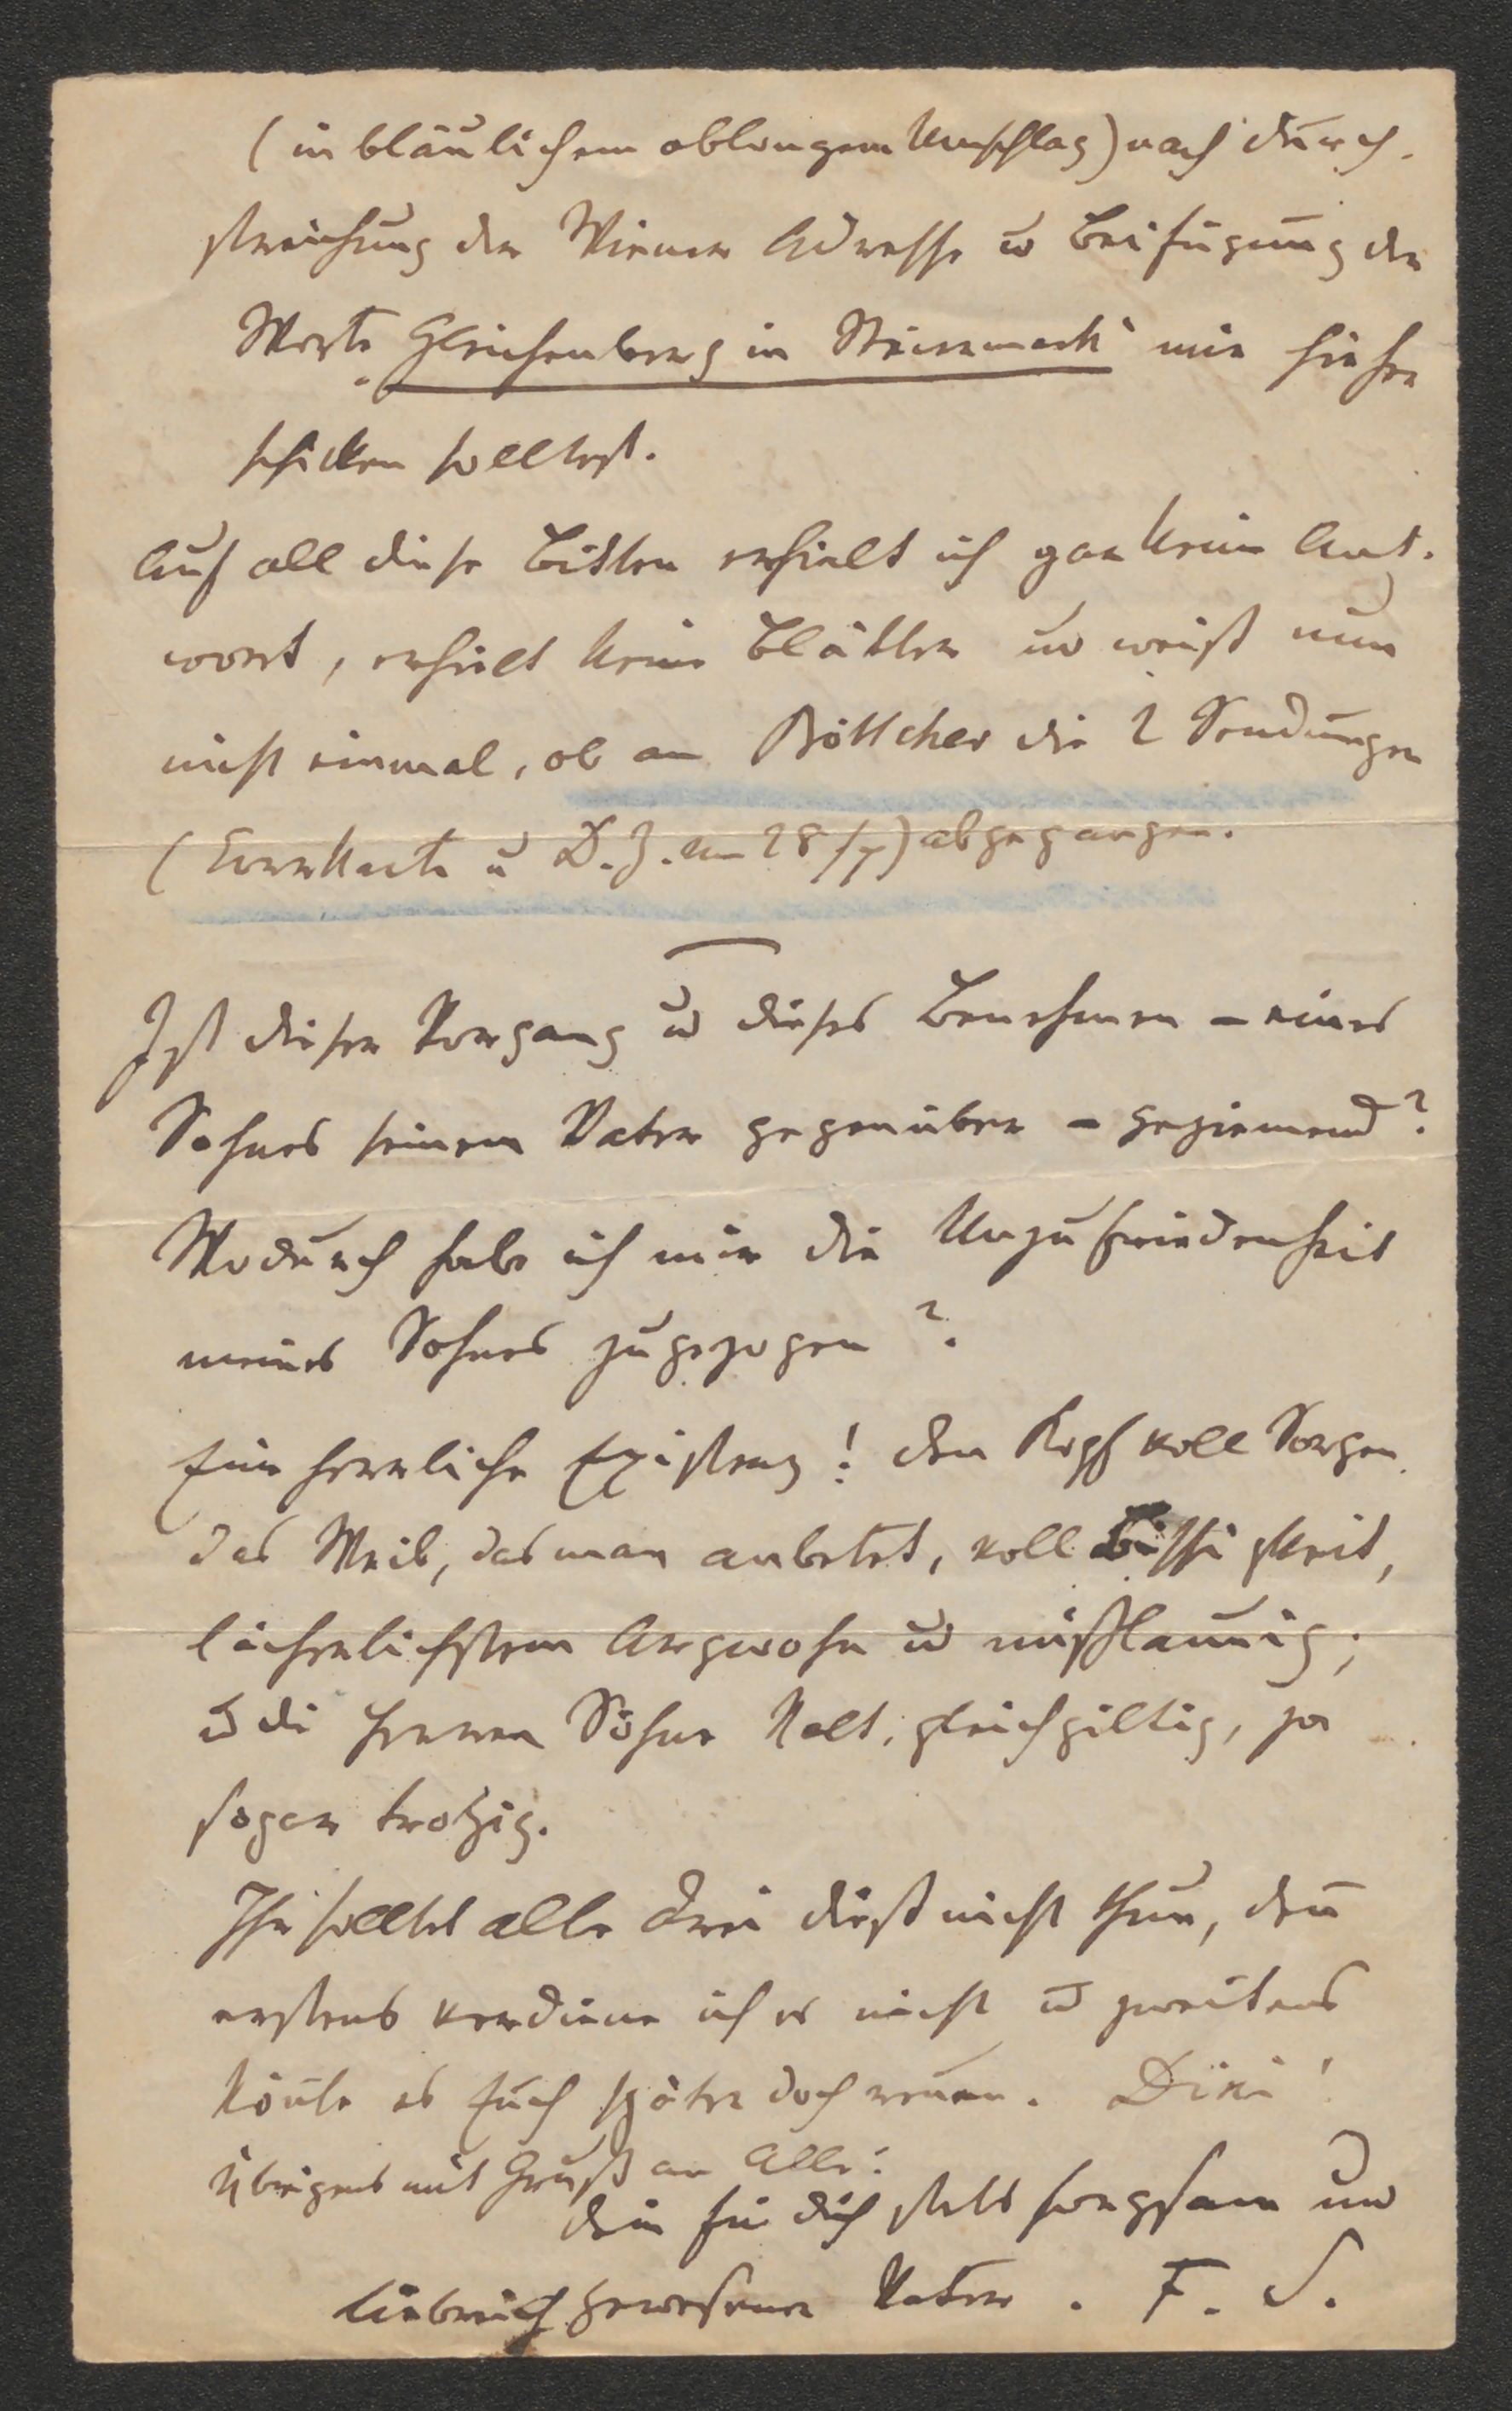 (in bläulichem oblongem Umschlag) nach Durch-
streichung der Wiener Adresse u Beifügung der
Worte „Gleichenberg in Steiermark“ mir hieher
schicken solltest.
Auf all diese Bitten erhielt ich gar keine Ant-
wort, erhielt keine Blätter und weiß nun
nicht einmal, ob an Böttcher die 2 Sendungen
(Corrkarte u D. Z. vom 28/7) abgegangen.
Ist dieser Vorgang u dieses Benehmen – eines
Sohnes seinem Vater gegenüber – geziemend?
Wodurch habe ich mir die Unzufriedenheit
meines Sohnes zugezogen?
Eine herrliche Existenz! den Kopf voll Sorgen
das Weib, das man anbetet, voll Bissigkeit,
lächerlichstem Argwohn u mißlaunig;
u die Herren Söhne kalt, gleichgiltig, ja
sogar trotzig.
Ihr solltet alle drei dieß nicht thun, den̄
erstens verdiene ich es nicht u zweitens
kön̄te es Euch später doch reuen. Dixi!
Übrigens mit Gruß an Alle:
Dein für dich stets sorgsam und
liebreich gewesener Vater. F. S.